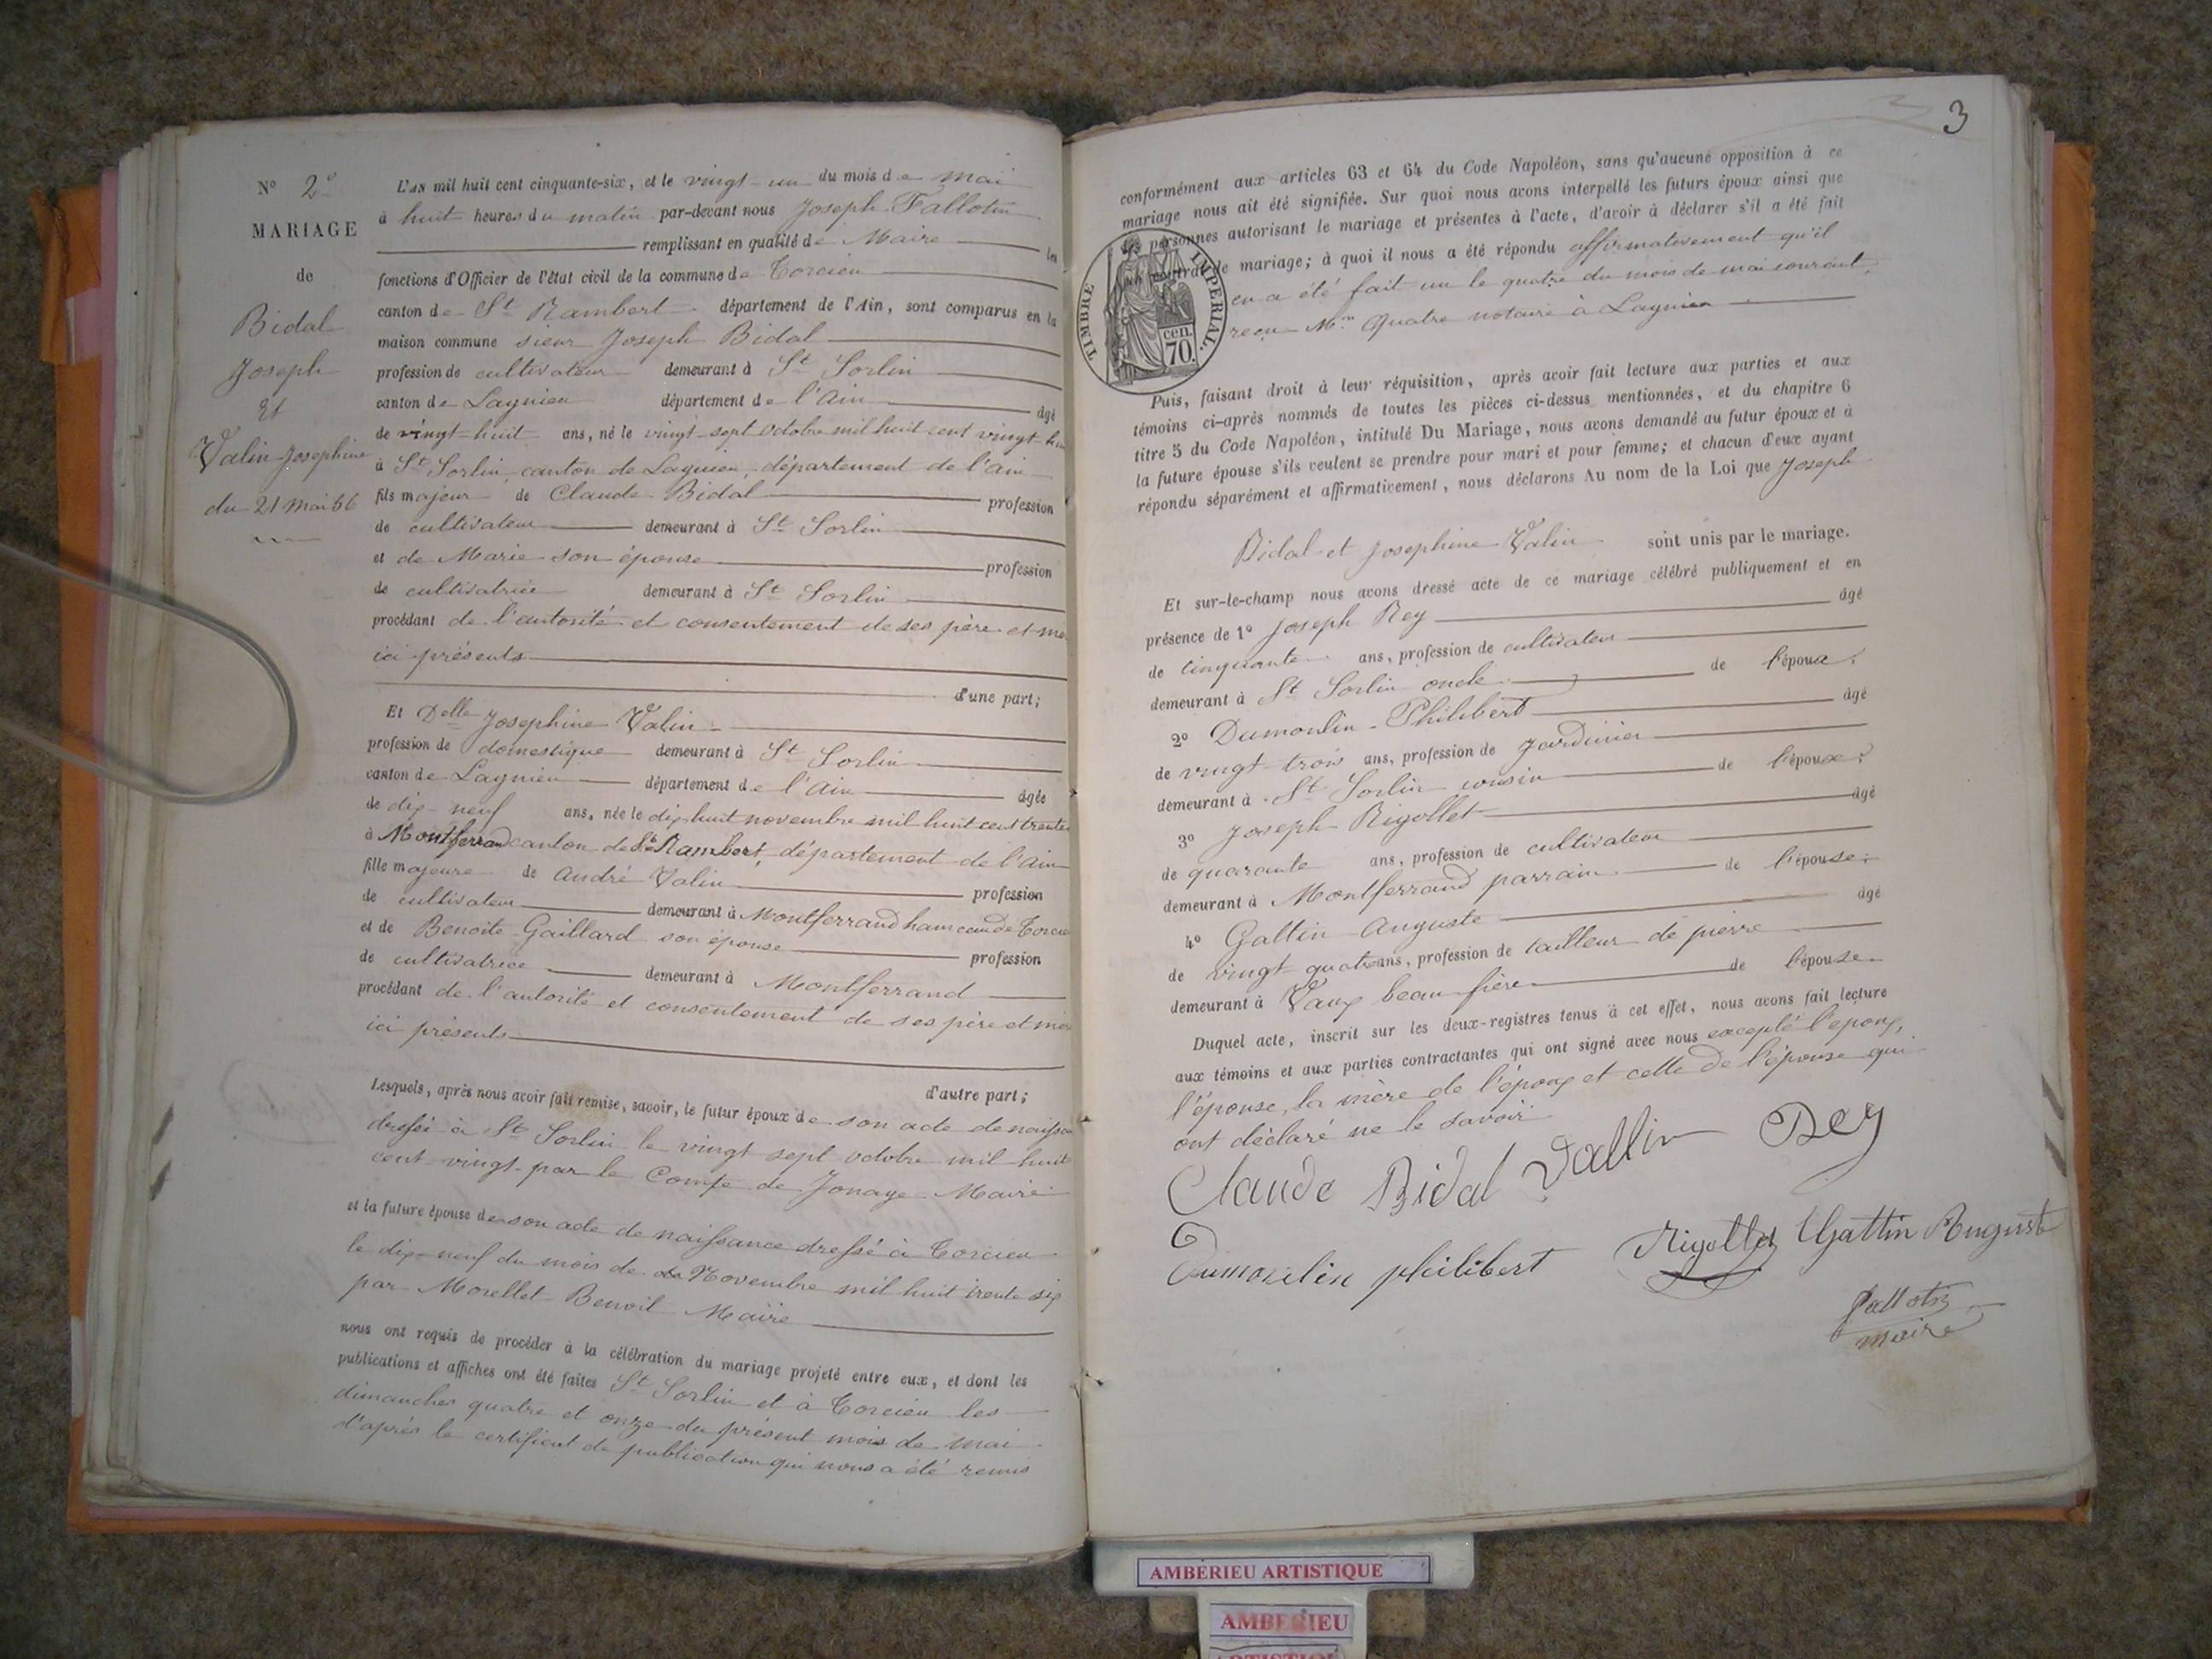 N° 2e
MARIAGE
de
Bidal
Joseph
Et
Valin Josephine
du 21 mai 56
L'AN mil huit cent cinquante-six, et le vingt-un du mois de mai
à huit heures du matin par-devant nous Joseph Fallotin
remplissant en qualité de Maire les
fonctions d'Officier de l'état civil de la commune de Torcieu
canton de St Rambert département de l'Ain, sont comparus en la
maison commune sieur Joseph Bidal
profession de cultivateur demeurant à St Sorlin
canton de Lagnieu département de l'Ain âgé
de vingt-huit ans, né le vingt-sept octobre mil huit cent vingt-
à St Sorlin, canton de Lagnieu, département de l'ain
fils majeur de Claude Bidal profession
de cultivateur demeurant à St Sorlin
et de Marie son épouse profession
de cultivatrice demeurant à St Sorlin
procédant de l'autorité et consentement de ses père et
ici présents
d'une part;
Et Delle Josephine Valin
profession de domestique demeurant à St Sorlin
canton de Lagnieu département de l'Ain âgée
de dix-neuf ans, née le dix huit novembre mil huit cent trente
à Montferrand canton de St Rambert, département de l'Ain
fille majeure de André Valin profession
de cultivateur demeurant à Montferrand hameau de
et de Benoite Gaillard son épouse profession
de cultivatrice demeurant à Montferrand
procédant de l'autorité et consentement de ses père et
ici présents
d'autre part;
Lesquels, après nous avoir fait remise, savoir, le futur époux de son acte de
dressé à St Sorlin le vingt sept octobre mil huit
cent vingt par le Comte de Jonage Maire
et la future épouse de son acte de naissance dressé à Torcieu
le dix-neuf du mois de Novembre mil huit trente six
par Morellet Benoit Maire
nous ont requis de procéder à la célébration du mariage projeté entre eux, et dont les
publications et affiches ont été faites St Sorlin et à Torcieu les
dimanches quatre et onze du présent mois de mai
d'après le certificat de publication qui nous a été remis
3
conformément aux articles 63 et 64 du Code Napoléon, sans qu'aucune opposition à ce
mariage nous ait été signifiée. Sur quoi nous avons interpellé les futurs époux ainsi que
les personnes autorisant le mariage et présentes à l'acte, d'avoir à déclarer s'il a été fait
contrat de mariage; à quoi il nous a été répondu affirmativement qu'il
en a été fait un le quatre du mois de mai courant,
reçu Me Quatre notaire à Lagnieu
TIMBRE IMPERIAL.
cen.
70.
Puis, faisant droit à leur réquisition, après avoir fait lecture aux parties et aux
témoins ci-après nommés de toutes les pièces ci-dessus mentionnées, et du chapitre 6
titre 5 du Code Napoléon, intitulé Du Mariage, nous avons demandé au futur époux et à
la future épouse s'ils veulent se prendre pour mari et pour femme; et chacun d'eux ayant
répondu séparément et affirmativement, nous déclarons Au nom de la Loi que Joseph
Bidal et Josephine Valin sont unis par le mariage.
Et sur-le-champ nous avons dressé acte de ce mariage célébré publiquement et en
présence de 1° Joseph Rey âgé
de cinquante ans, profession de cultivateur
demeurant à St Sorlin oncle de l'époux;
2° Dumoulin Philibert âgé
de vingt-trois ans, profession de jardinier
demeurant à St Sorlin cousin de l'époux;
3° Joseph Rigollet âgé
de quarante ans, profession de cultivateur
demeurant à Montferrand parrain de l'épouse;
4° Gattin Auguste âgé
de vingt-quatre ans, profession de tailleur de pierre
demeurant à Vaux beau frère de l'épouse.
Duquel acte, inscrit sur les deux registres tenus à cet effet, nous avons fait lecture
aux témoins et aux parties contractantes qui ont signé avec nous excepté l'epoux,
l'épouse, la mère de l'époux et celle de l'épouse qui
ont déclaré ne le savoir
Claude Bidal Vallin Rey
Dumoulin philibert Rigollet Gattin Auguste
Fallotin
maire
AMBERIEU ARTISTIQUE
AMBERIEU
ARTISTIQUE